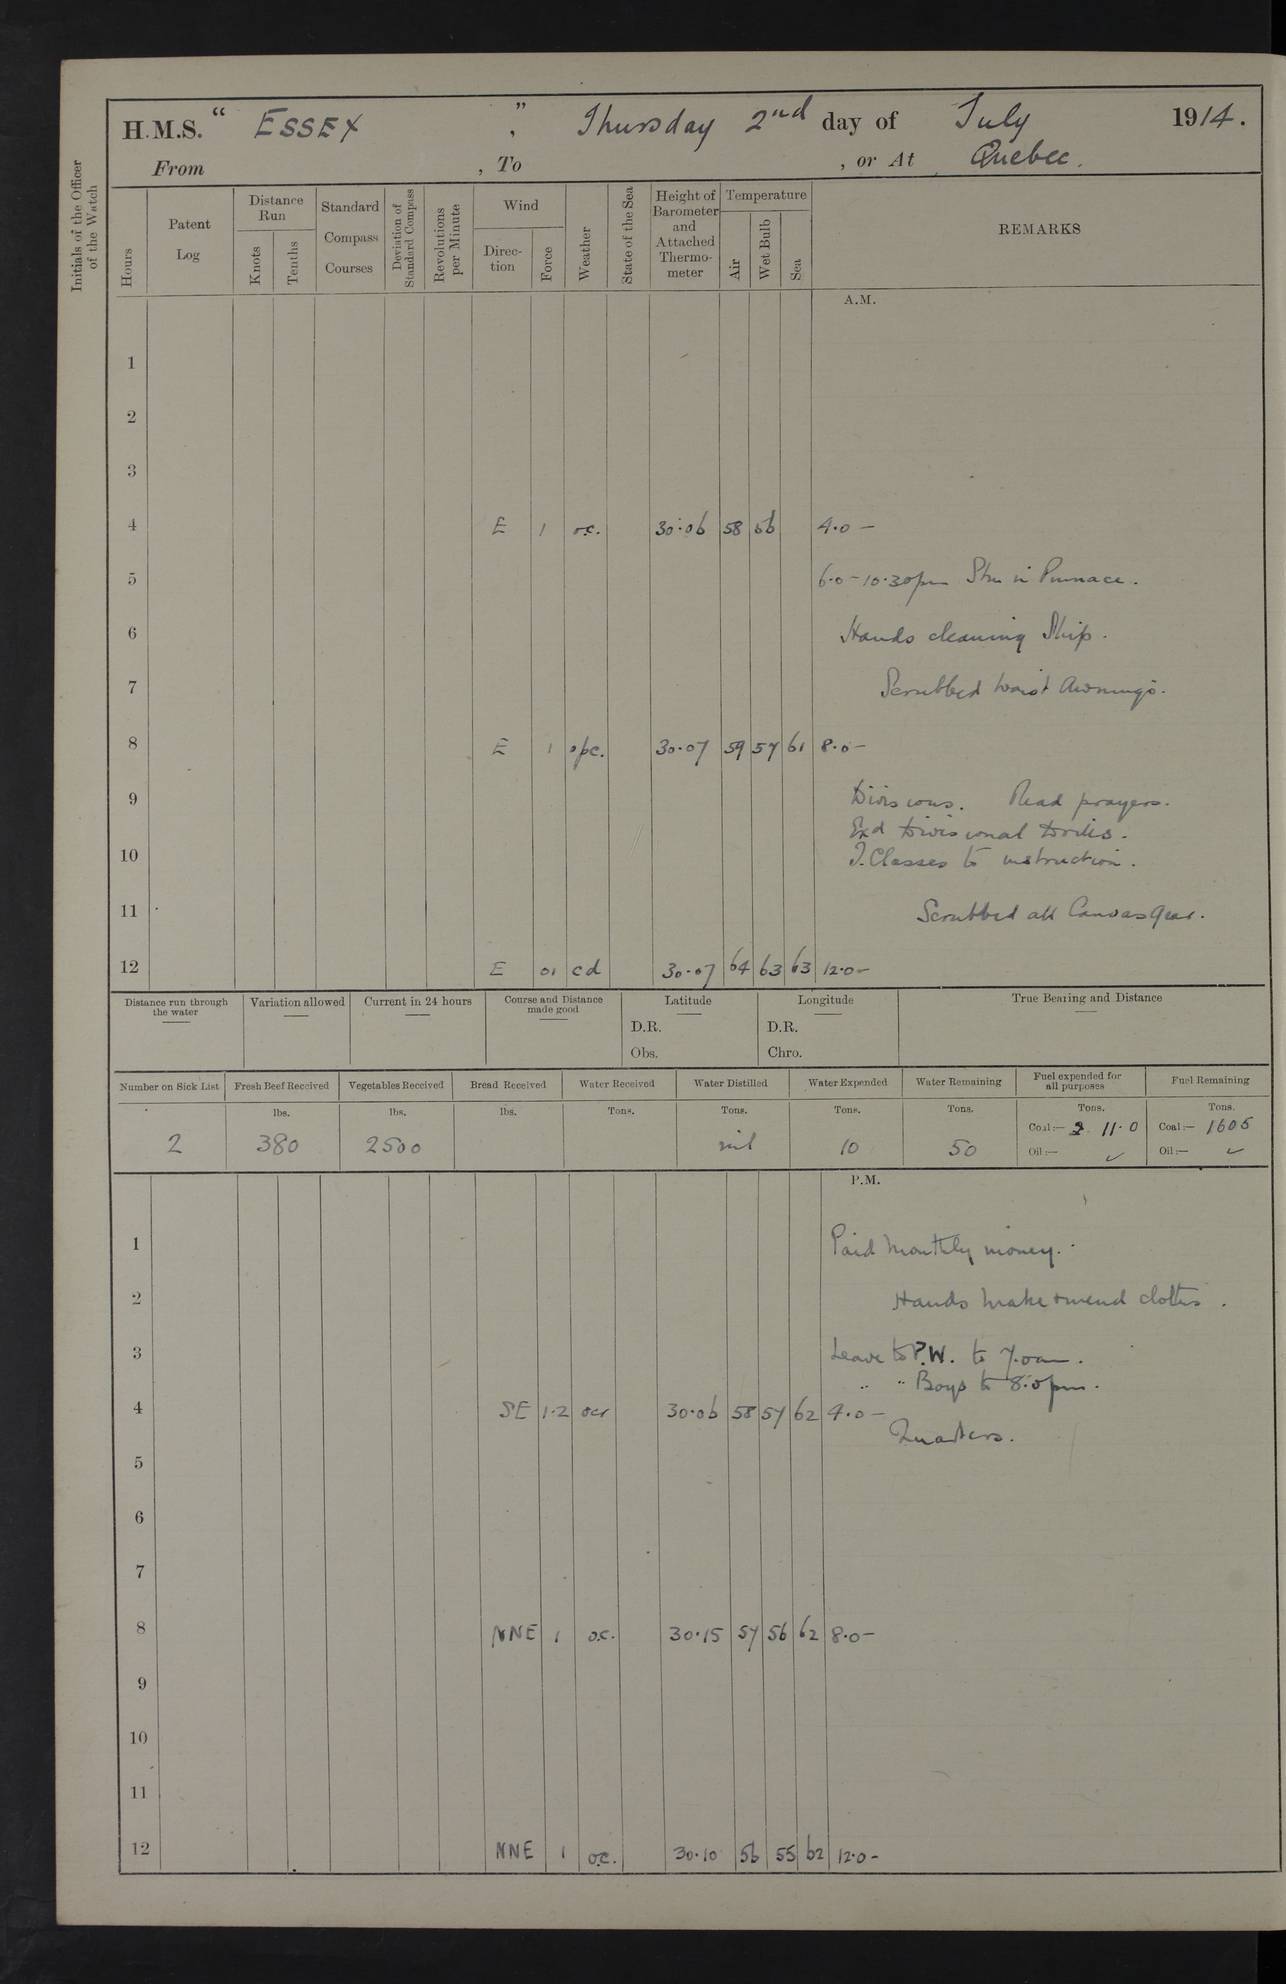 H.M.S. “ ESSEX ” , Thursday 2nd day of July 1914.
From , To , or At Quebec.
Initials of the Officer of the Watch
Hours
Patent Log
Distance Run
Knots
Tenths
Standard Compass Courses
Deviation of Standard Compass
Revolutions per Minute
Wind
Direc-tion
Force
Weather
State of the Sea
Height of Barometer and Attached Thermo-meter
Temperature
Air
Wet Bulb
Sea
REMARKS
A.M.
1
2
3
4 E 1 o.c. 30.06 58 56 4.0 -
5 6.0 - 10.30pm Stm in Pinnace.
6 Hands cleaning Ship.
7 Scrubbed waist Awnings.
8 E 1 opc. 30.07 59 57 61 8.0 -
9 Divisions. Read prayers.
Exd Divisional Drills.
10 I. Classes to instruction.
11 Scrubbed all Canvas Gear.
12 E 01 cd 30.07 64 63 63 12.0 -
Distance run through the water
Variation allowed
Current in 24 hours
Course and Distance made good
Latitude
D.R.
Obs.
Longitude
D.R.
Chro.
True Bearing and Distance
Number on Sick List Fresh Beef Received Vegetables Received Bread Received Water Received Water Distilled Water Expended Water Remaining Fuel expended for all purposes Fuel Remaining
lbs. lbs. lbs. Tons. Tons. Tons. Tons. Tons. Tons.
Coal:— 11.0 Coal:— 1605
2 380 2500 nil 10 50
Oil:— ✓ Oil:— ✓
P.M.
1 Paid Monthly money.
2 Hands make & mend clothes.
3 Leave to P.W. to 7.0am.
" " Boys to 8.0pm.
4 SE 1.2 ocr 30.06 58 57 62 4.0 -
Quarters.
5
6
7
8 NNE 1 o.c. 30.15 57 56 62 8.0 -
9
10
11
12 NNE 1 o.c. 30.10 56 55 62 12.0 -